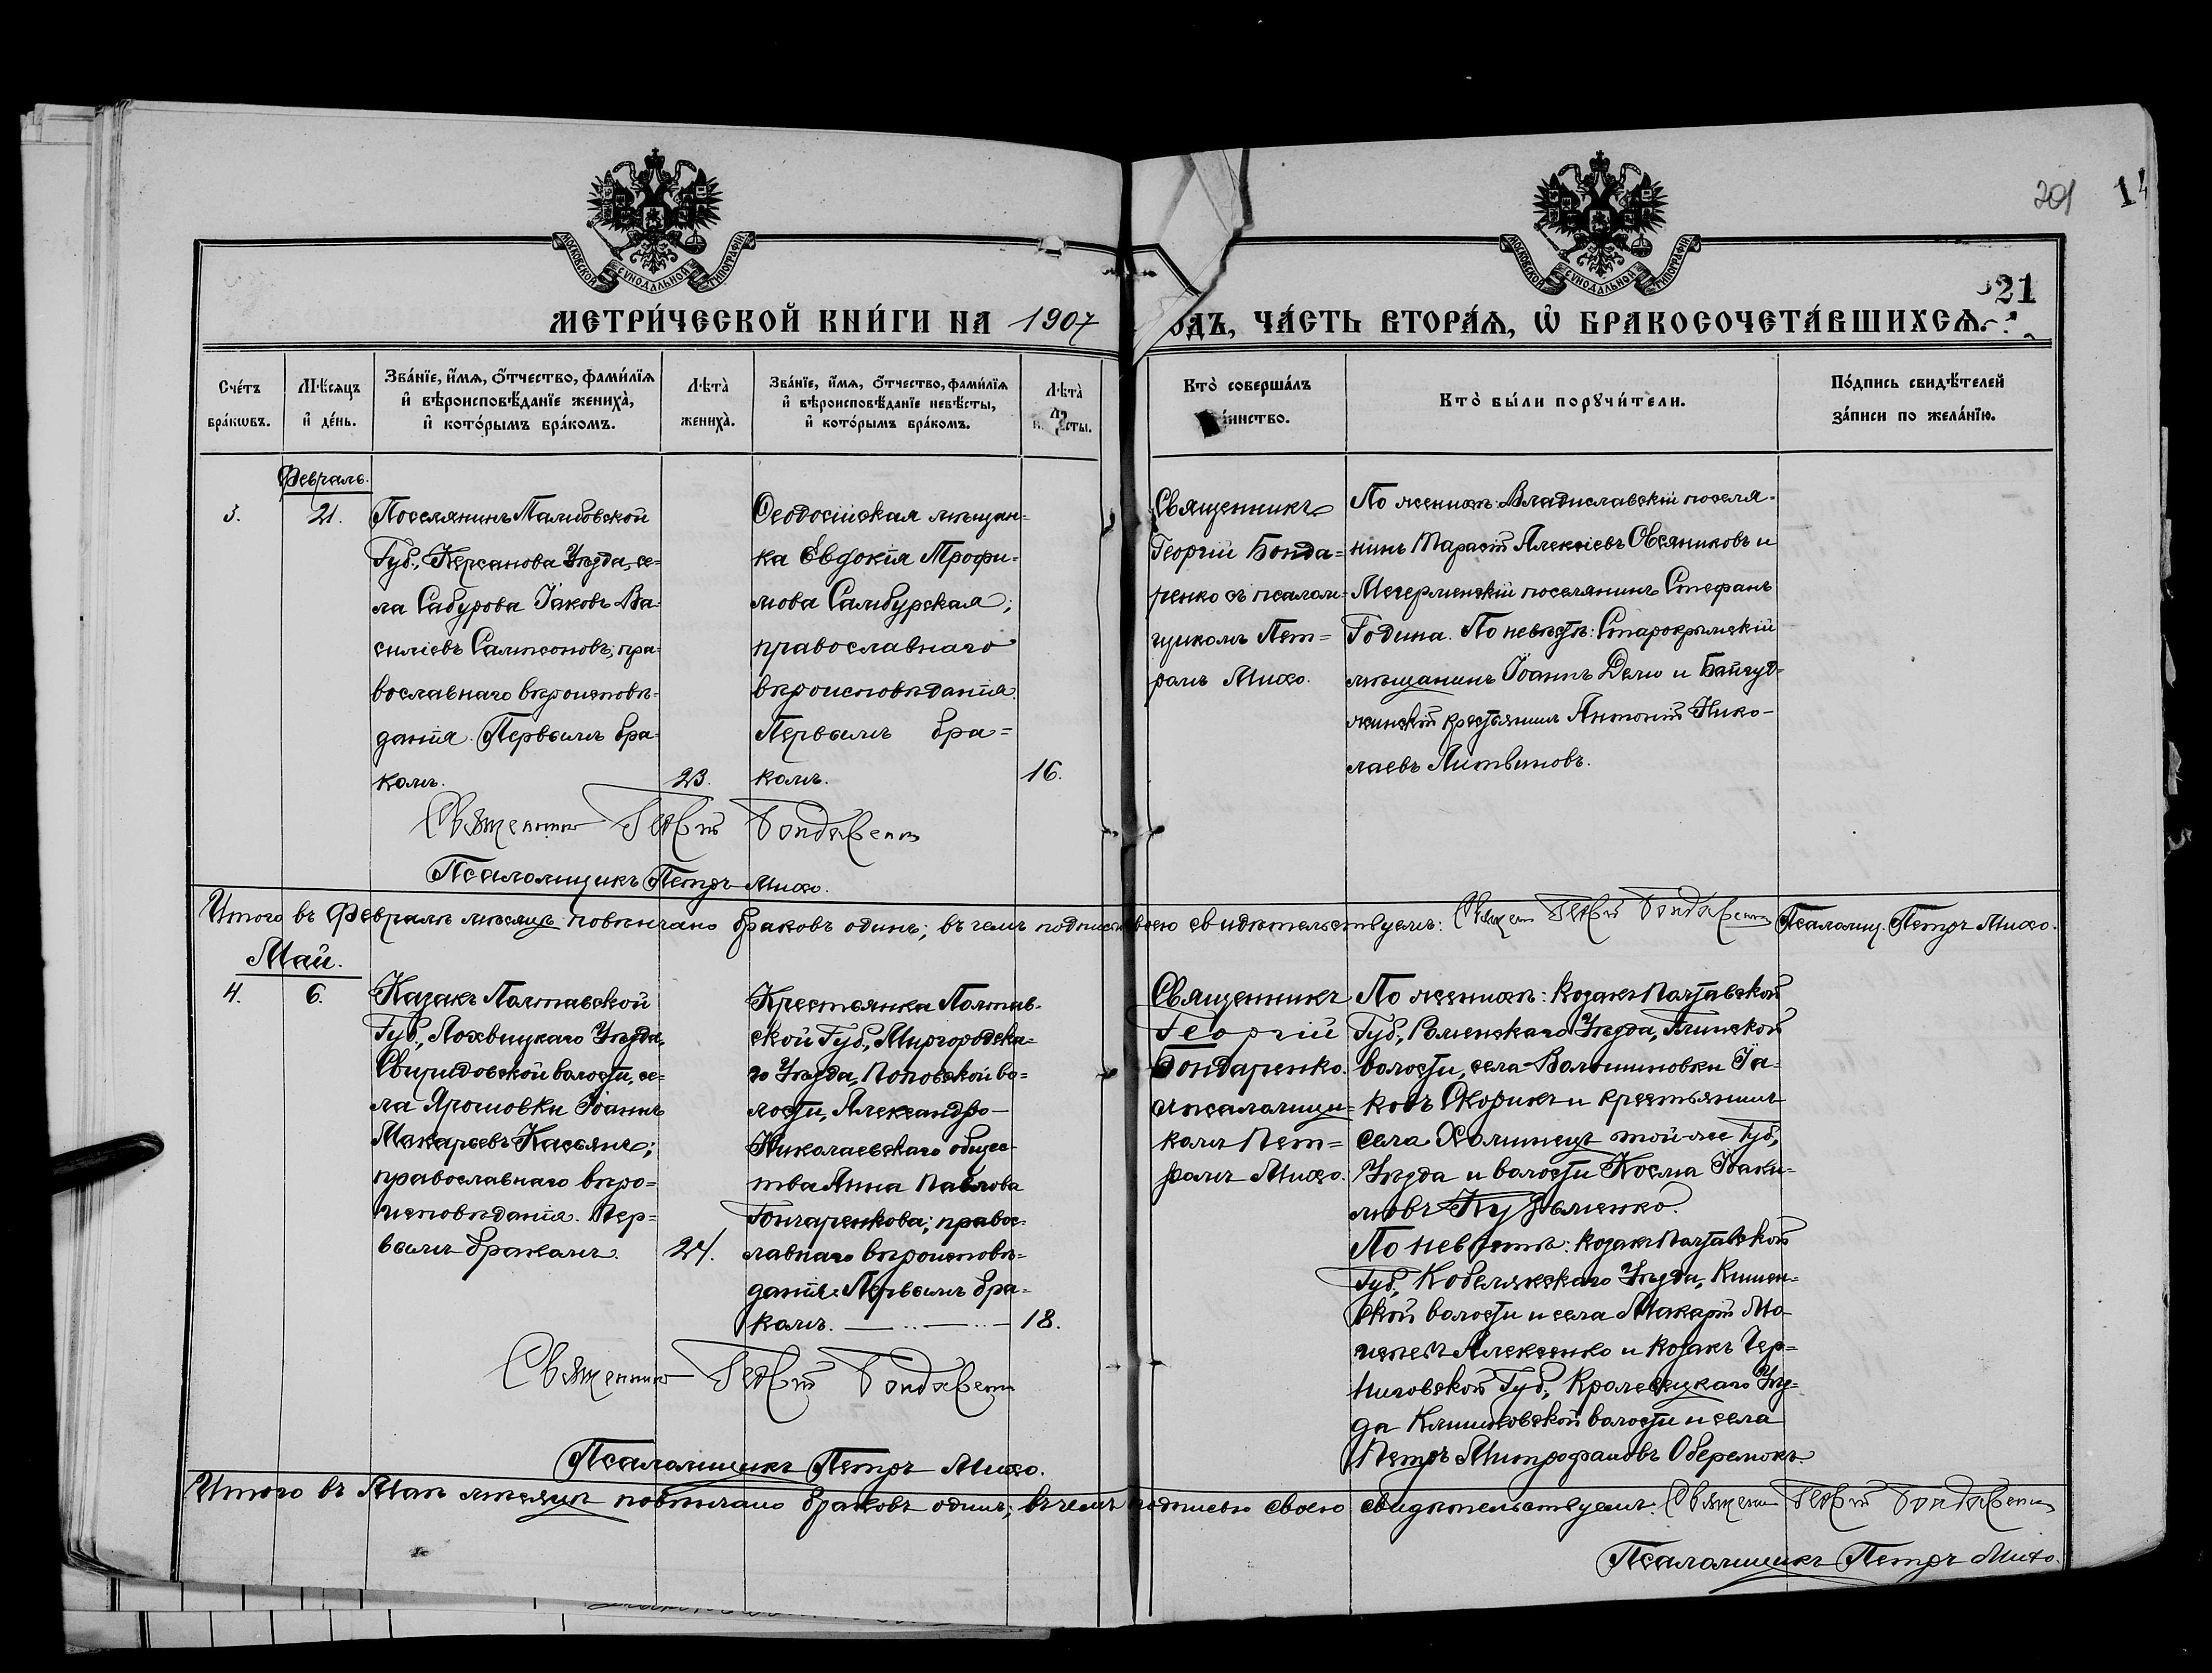 201
14
МОСКОВСКОЙ СѴНОДАЛЬНОЙ ТИПОГРАФІИ
МОСКОВСКОЙ СѴНОДАЛЬНОЙ ТИПОГРАФІИ
21
МЕТРИ́ЧЕСКОЙ КНИ́ГИ НА 1907 ОДЪ, ЧА́СТЬ ВТОРА́Ѧ, Ѽ БРАКОСОЧЕТА́ВШИХСѦ.
Сче́тъ бра́кѡвъ.
Мѣ́сяцъ и҆ де́нь.
Зва́нїе, и҆́мѧ, ѻ҆́тчество, фами́лїѧ и҆ вѣроисповѣ́данїе жениха̀, и҆ кото́рымъ бра́комъ.
Лѣ́та̀ жениха̀.
Зва́нїе, и҆́мѧ, ѻ҆́тчество, фами́лїѧ и҆ вѣроисповѣ́данїе невѣ́сты, и҆ кото́рымъ бра́комъ.
Лѣ́та̀ сты.
Кто̀ соверша́лъ инство.
Кто̀ бы́ли порꙋчи́тели.
По́дпись свидѣ́телей за́писи по жела́нїю.
Февраль.
3.
21.
Поселянинъ Тамбовской
Губ., Керсанова Уѣзда, се-
ла Сабурова Іаковъ Ва-
силіевъ Самсоновъ; пра-
вославнаго вѣроисповѣ-
данія. Первымъ бра-
комъ.
23.
Ѳеодосійская мѣщан-
ка Евдокія Трофи-
мова Самбурская;
православнаго
вѣроисповѣданія.
Первымъ бра-
комъ.
16.
Священникъ
Георгій Бонда-
ренко съ псалом-
щикомъ Пет-
ромъ Михо.
По женихѣ: Владиславскій поселя-
нинъ Тарасій Алексіевъ Овсяниковъ и
Мечерменскій поселянинъ Стефанъ
Година. По невѣстѣ: Старокрымскій
мѣщанинъ Іоаннъ Делю и
крестьянинъ Антоній Нико-
лаевъ Литвиновъ.
Священник Георгій Бондаренко
Псаломщикъ Петръ Михо.
Итого въ Февралѣ мѣсяцѣ повѣнчано браковъ одинъ; въ чемъ подписью своею свидѣтельствуемъ: Священ Георгій Бондаренко Псаломщ. Петръ Михо.
Май.
4.
6.
Казакъ Полтавской
Губ., Лохвицкаго Уѣзда,
Свиридовской волости, се-
ла Ярошовки Іоаннъ
Макаріевъ Касьянъ;
православнаго вѣро-
исповѣданія. Пер-
вымъ бракомъ.
24.
Крестьянка Полтав-
ской Губ., Миргородска-
го Уѣзда, Поповской во-
лости, Александро-
Николаевскаго общес-
тва Анна Павлова
Гончаренкова; правос-
лавнаго вѣроисповѣ-
данія. Первымъ бра-
комъ.
18.
Священникъ
Георгій
Бондаренко
съ псаломщи-
комъ Пет-
ромъ Михо.
По женихѣ: козакъ Полтавской
Губ., Роменскаго Уѣзда, Глинской
волости, села Волошиновки Іа-
ковъ Скорикъ и крестьянинъ
села Хоминецъ той-же Губ.,
Уѣзда и волости Косма Іоаки-
мовъ Кузьменко.
По невѣстѣ: козакъ Полтавской
Губ., Кобелякскаго Уѣзда, Кишен-
ской волости и села Макарій Мо-
исеевъ Алексенко и козакъ Чер-
ниговской Губ., Кролевецкаго Уѣз-
да Клишковской волости и села
Петръ Митрофановъ Оберемокъ.
Священник Георгій Бондаренко
Псаломщикъ Петръ Михо.
Итого въ Маѣ мѣсяцѣ повѣнчано браковъ одинъ; въ чемъ подписью своею свидѣтельствуемъ: Священ Георгій Бондаренко
Псаломщикъ Петръ Михо.